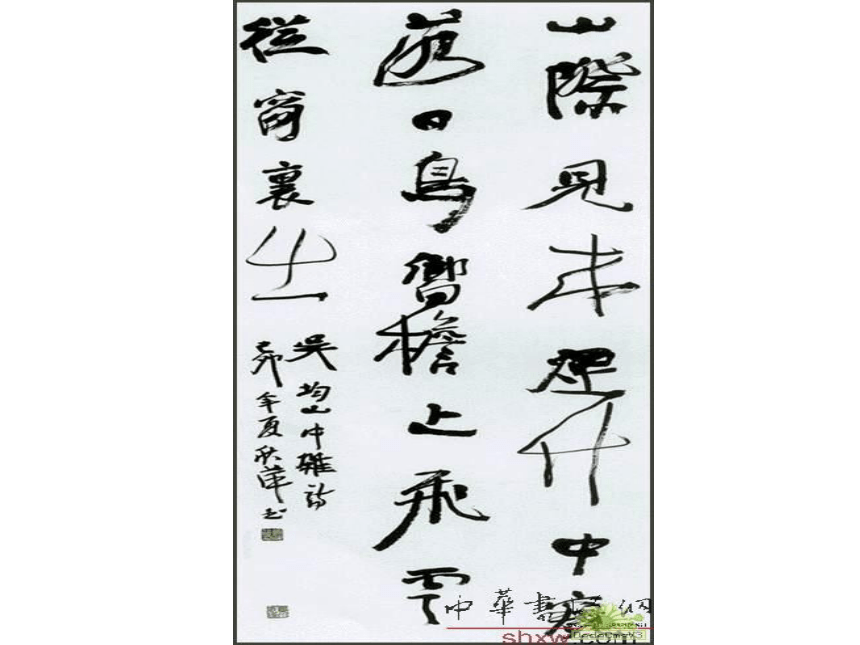 山際見来煙竹中窺
落日鳥嚮檐上飛雲
從窗裏出
吳均山中雜詩
己卯年夏秋萍书
中華書法網
shxw.com